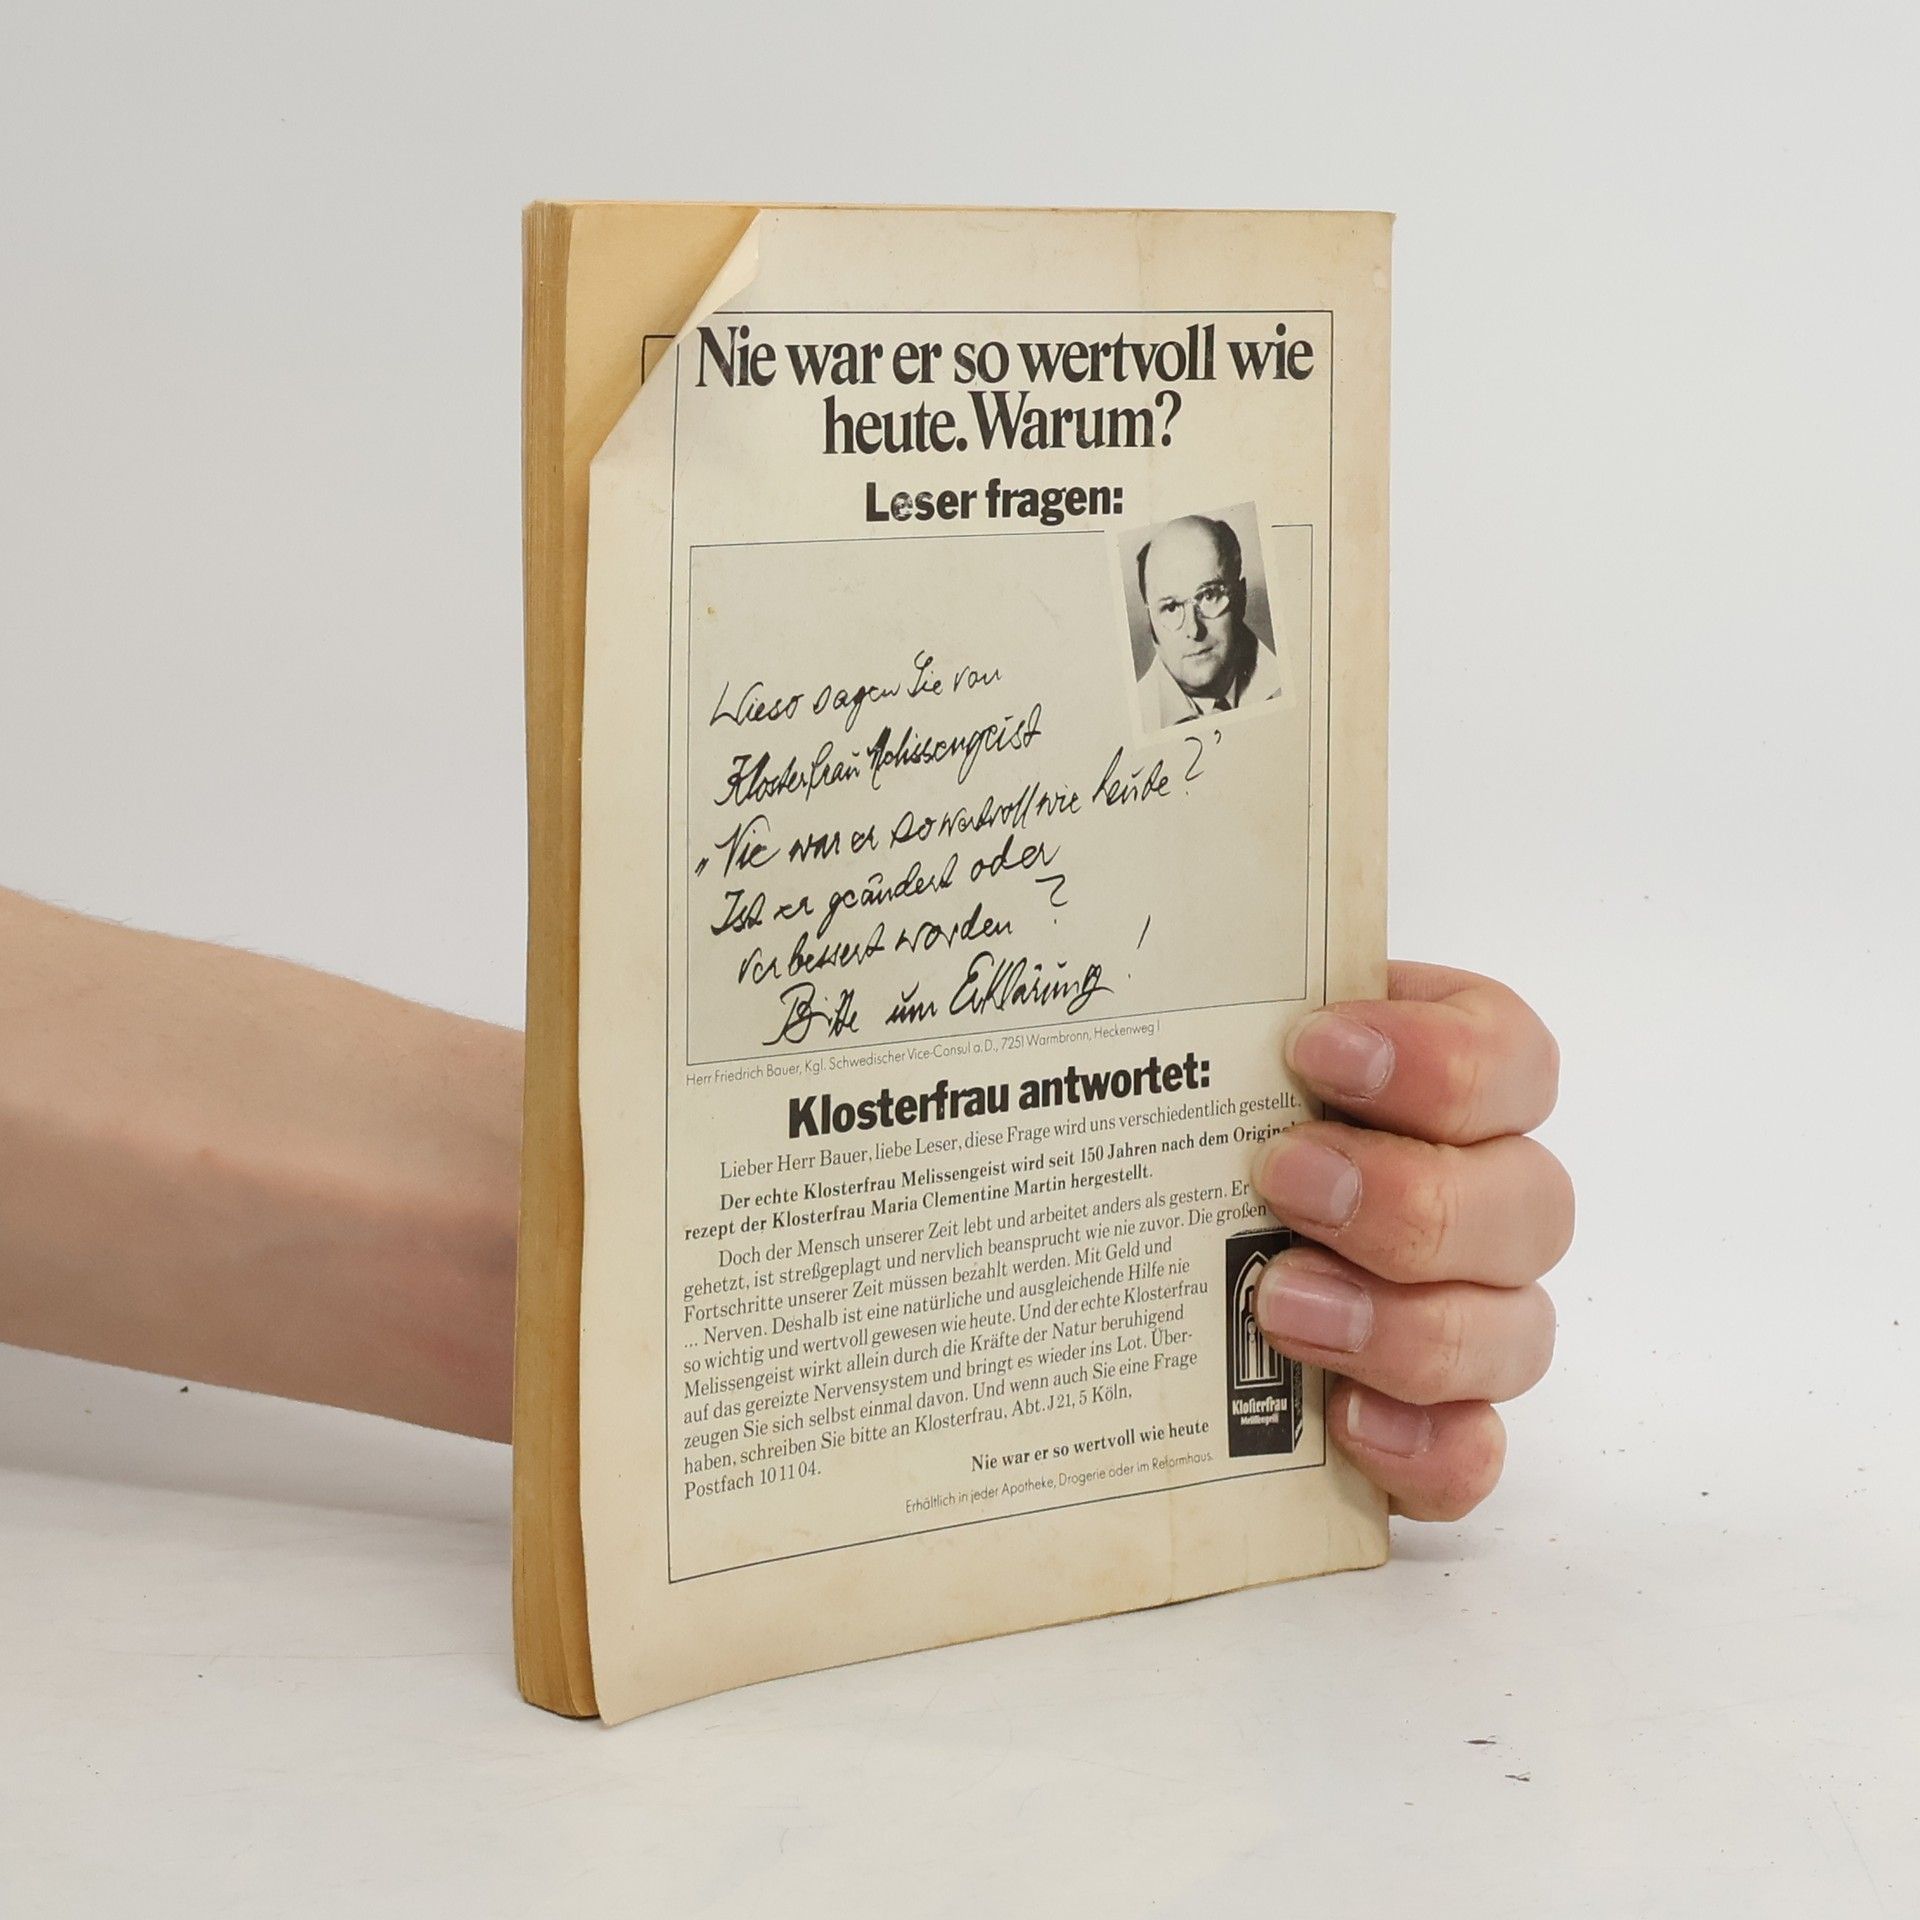 Nie war er so wertvoll wie
heute. Warum?
Leser fragen:
Wieso sagen Sie von
Klosterfrau Melissengeist
„Nie war er so wertvoll wie heute?"
Ist er geändert oder
verbessert worden?
Bitte um Erklärung!
Herr Friedrich Bauer, Kgl. Schwedischer Vice-Consul a.D., 7251 Warmbronn, Heckenweg 1
Klosterfrau antwortet:
Lieber Herr Bauer, liebe Leser, diese Frage wird uns verschiedentlich gestellt.
Der echte Klosterfrau Melissengeist wird seit 150 Jahren nach dem Original-
rezept der Klosterfrau Maria Clementine Martin hergestellt.
Doch der Mensch unserer Zeit lebt und arbeitet anders als gestern. Er
gehetzt, ist streßgeplagt und nervlich beansprucht wie nie zuvor. Die großen
Fortschritte unserer Zeit müssen bezahlt werden. Mit Geld und
... Nerven. Deshalb ist eine natürliche und ausgleichende Hilfe nie
so wichtig und wertvoll gewesen wie heute. Und der echte Klosterfrau
Melissengeist wirkt allein durch die Kräfte der Natur beruhigend
auf das gereizte Nervensystem und bringt es wieder ins Lot. Über-
zeugen Sie sich selbst einmal davon. Und wenn auch Sie eine Frage
haben, schreiben Sie bitte an Klosterfrau, Abt. J 21, 5 Köln,
Postfach 10 11 04.
Nie war er so wertvoll wie heute
Erhältlich in jeder Apotheke, Drogerie oder im Reformhaus.
Klosterfrau
Melissengeist